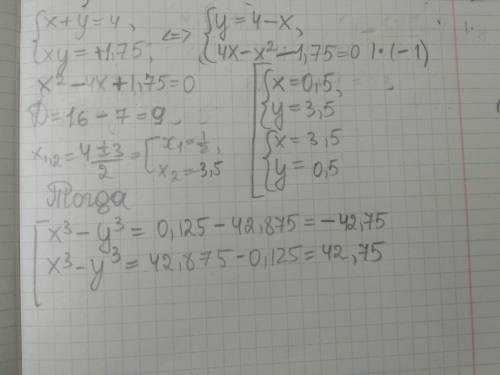 {x+y=4, <=> {y=4-x,
{xy=+1,75; {4x-x²-1,75=0 |·(-1)
x²-4x+1,75=0
D=16-7=9
x₁,₂=4±3/2=[x₁=1/2, x₂=3,5
[{x=0,5, y=3,5
{x=3,5 y=0,5
Тогда
[x³-y³=0,125-42,875=-42,75
x³-y³=42,875-0,125=42,75